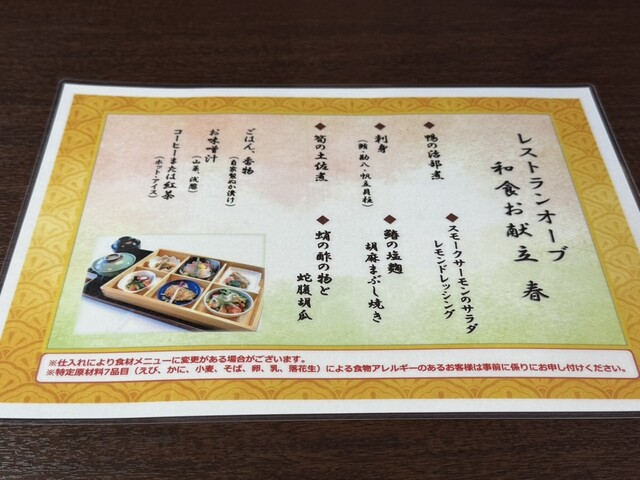 レストランオーブ
和食お献立 春
◆ 鴨の治部煮
◆ スモークサーモンのサラダ
レモンドレッシング
◆ 刺身
(鮪・勘八・帆立貝柱)
◆ 鰆の塩麹
胡麻まぶし焼き
◆ 筍の土佐煮
◆ 蛸の酢の物と
蛇腹胡瓜
ごはん、香物
(自家製ぬか漬け)
お味噌汁
(山菜、浅葱)
コーヒーまたは紅茶
(ホット・アイス)
※仕入れにより食材メニューに変更がある場合がございます。
※特定原材料7品目(えび、かに、小麦、そば、卵、乳、落花生)による食物アレルギーのあるお客様は事前に係りにお申し付けください。